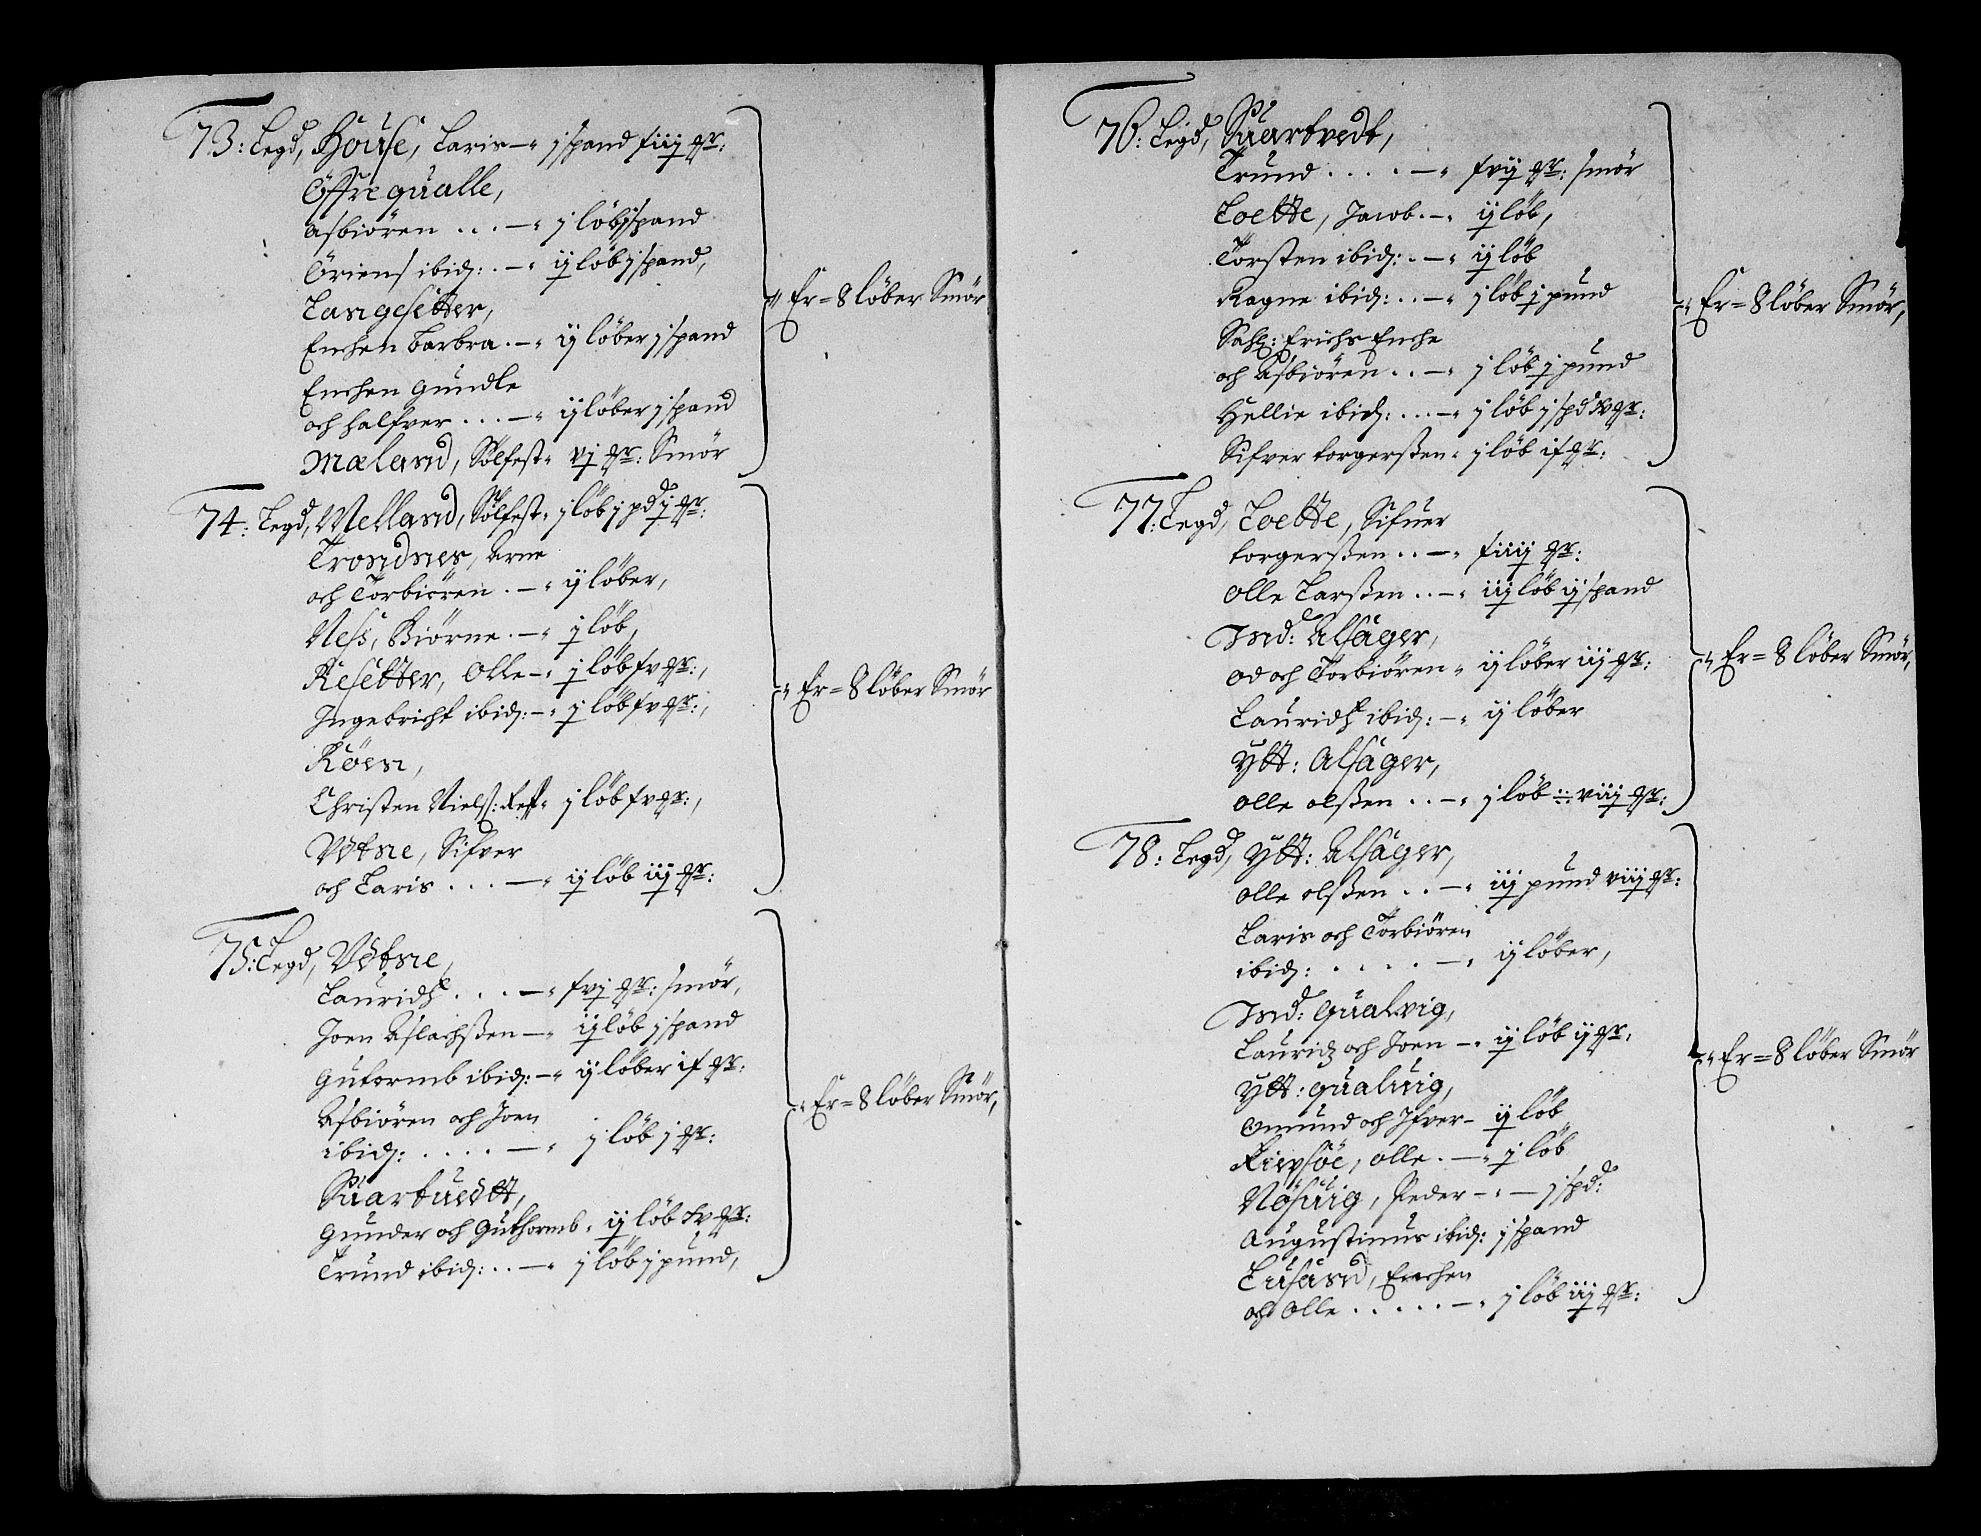 73: Legd, House, Laris — j spand fiiij mr:
Öffre qualle,
Asbiören . . . — j löb j spand
Öriens ibid: . — ij löb j spand,
Langesetter,
Enchen Barbra . — ij löber j spand
Enchen Gundle
och Halfver . . . — ij löber j spand
Mæland, Sölfest — vj mr: Smör
Er = 8 löber Smör
74: Legd, Melland, Sölfest j löb j pd j mr:
Trondnes, Arne
och Torbiören . — ij löber,
Ness, Biörne . — j löb,
Resetter, Olle — j löb fv mr:,
Ingebricht ibid: — j löb fv mr:,
Röen,
Christen Niels: j löb fv mr:,
Vötne, Sifver
och Laris . . . — ij löb iij mr:
Er = 8 löber Smör
75: Legd, Vötne,
Lauridtz . . . — fvj mr: smör,
Joen Aslachssen — ij löb j spand
Gutormb ibid: — ij löber if mr:
Asbiören och Joen
ibid: . . . . — j löb j mr:
Suartuedtt,
Gunder och Guthormb ij löb fv mr:
Trund ibid: . . — j löb j pund,
Er = 8 löber Smör,
76: Legd, Suartvedt,
Trund . . . . — fvij mr: smör
Loette, Jacob . — ij löb,
Torsten ibid: . — ij löb
Ragne ibid: . . — j löb j pund
Sahl: Erichs Enche
och Asbiören . . — j löb j pund
Hellie ibid: . . . — j löb j spd xv mr:
Sifver torgerssen j löb if mr:
Er = 8 löber Smör,
77: Legd, Loette, Sifuer
torgerssen . . — fiiij mr:
Olle Larssen . . — iij löb ij spand
Ind: Alsager,
Od och Torbiören ij löber iij mr:
Lauridtz ibid: — ij löber
Ytt: Alsager,
Olle olssen . . — j löb ÷ viij mr:
Er = 8 löber Smör,
78: Legd, Ytt: Alsager,
Olle olssen . . — iij pund viij mr:
Laris och Torbiören
ibid: . . . . — ij löber,
Ind: Qualvig,
Lauridz och Joen — ij löb ij mr:
Ytt: qualuig,
Omund och Ifver — ij löb
olle . — j löb
Nösuig, Peder — j spd:
Augustinus ibid: j spand
Lusand, Enchen
och Olle . . . . . — j löb iij mr:
Er = 8 löber Smör